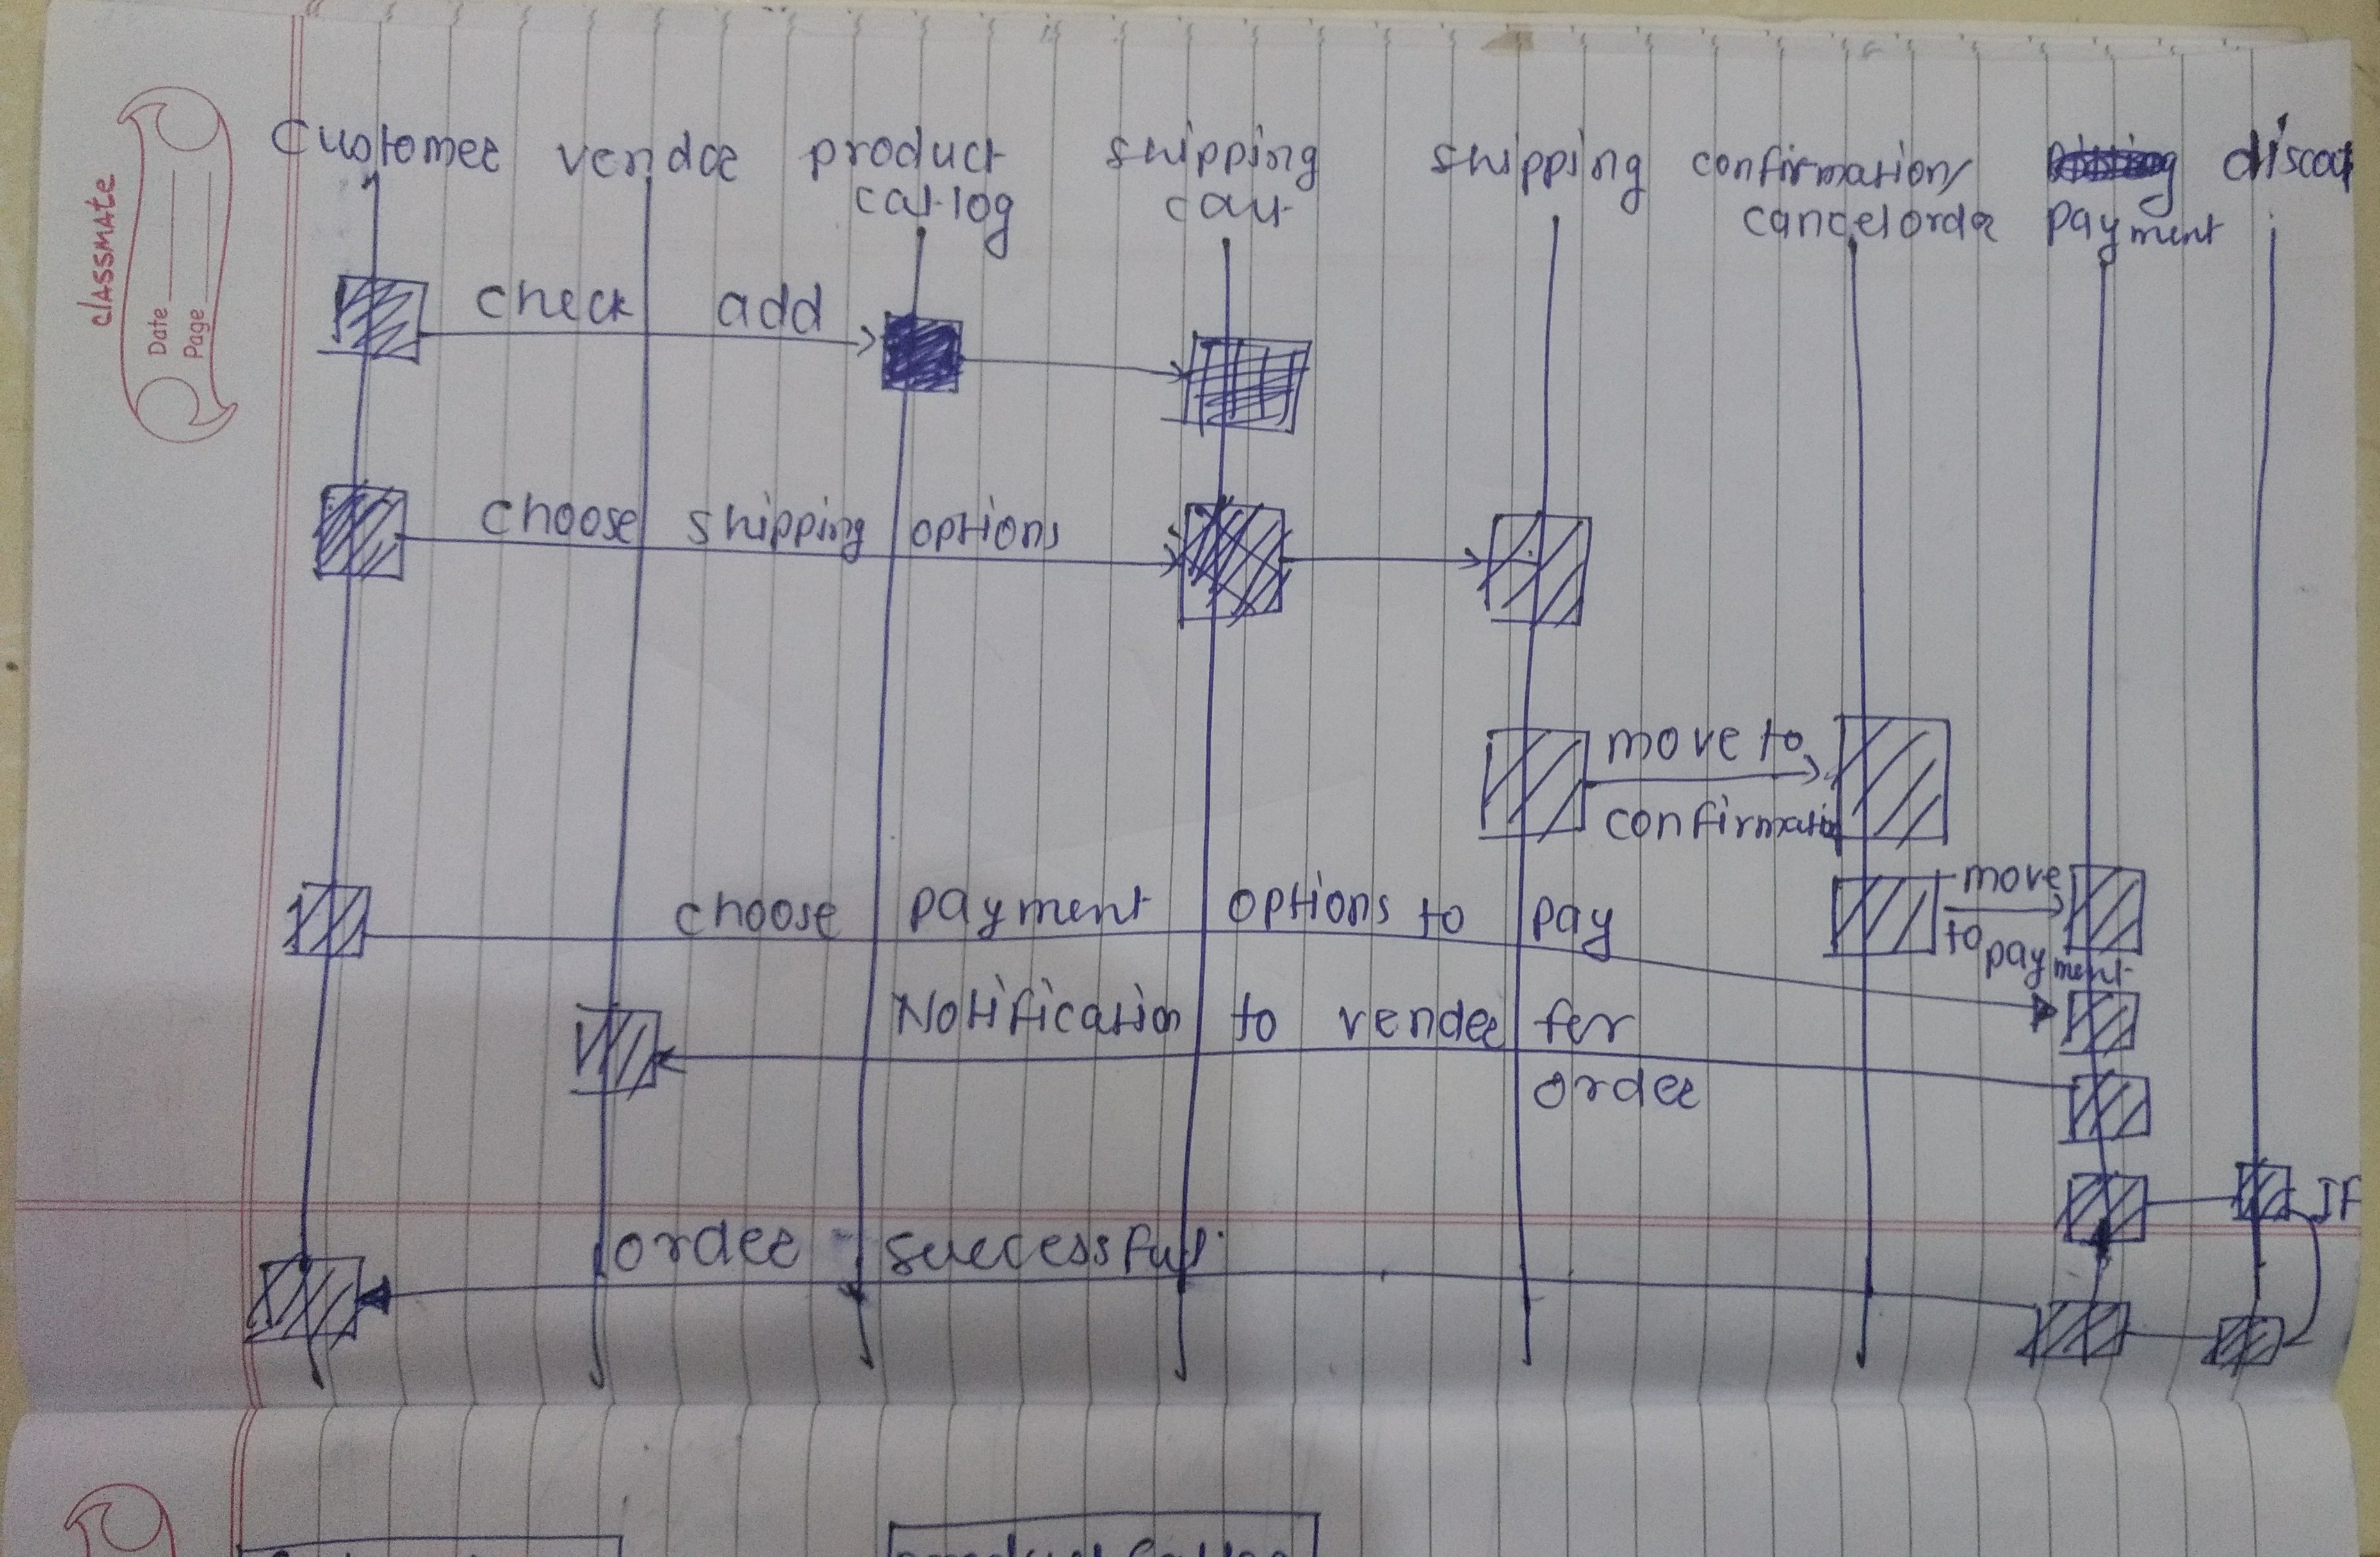 classmate
Date
Page
Customer vendor product catlog shipping cart shipping confirmation/ cancelorder payment
check add
choose shipping options
move to
confirmatio
choose payment options to pay
move
to payment
Notification to vender for
order
IF
order successful